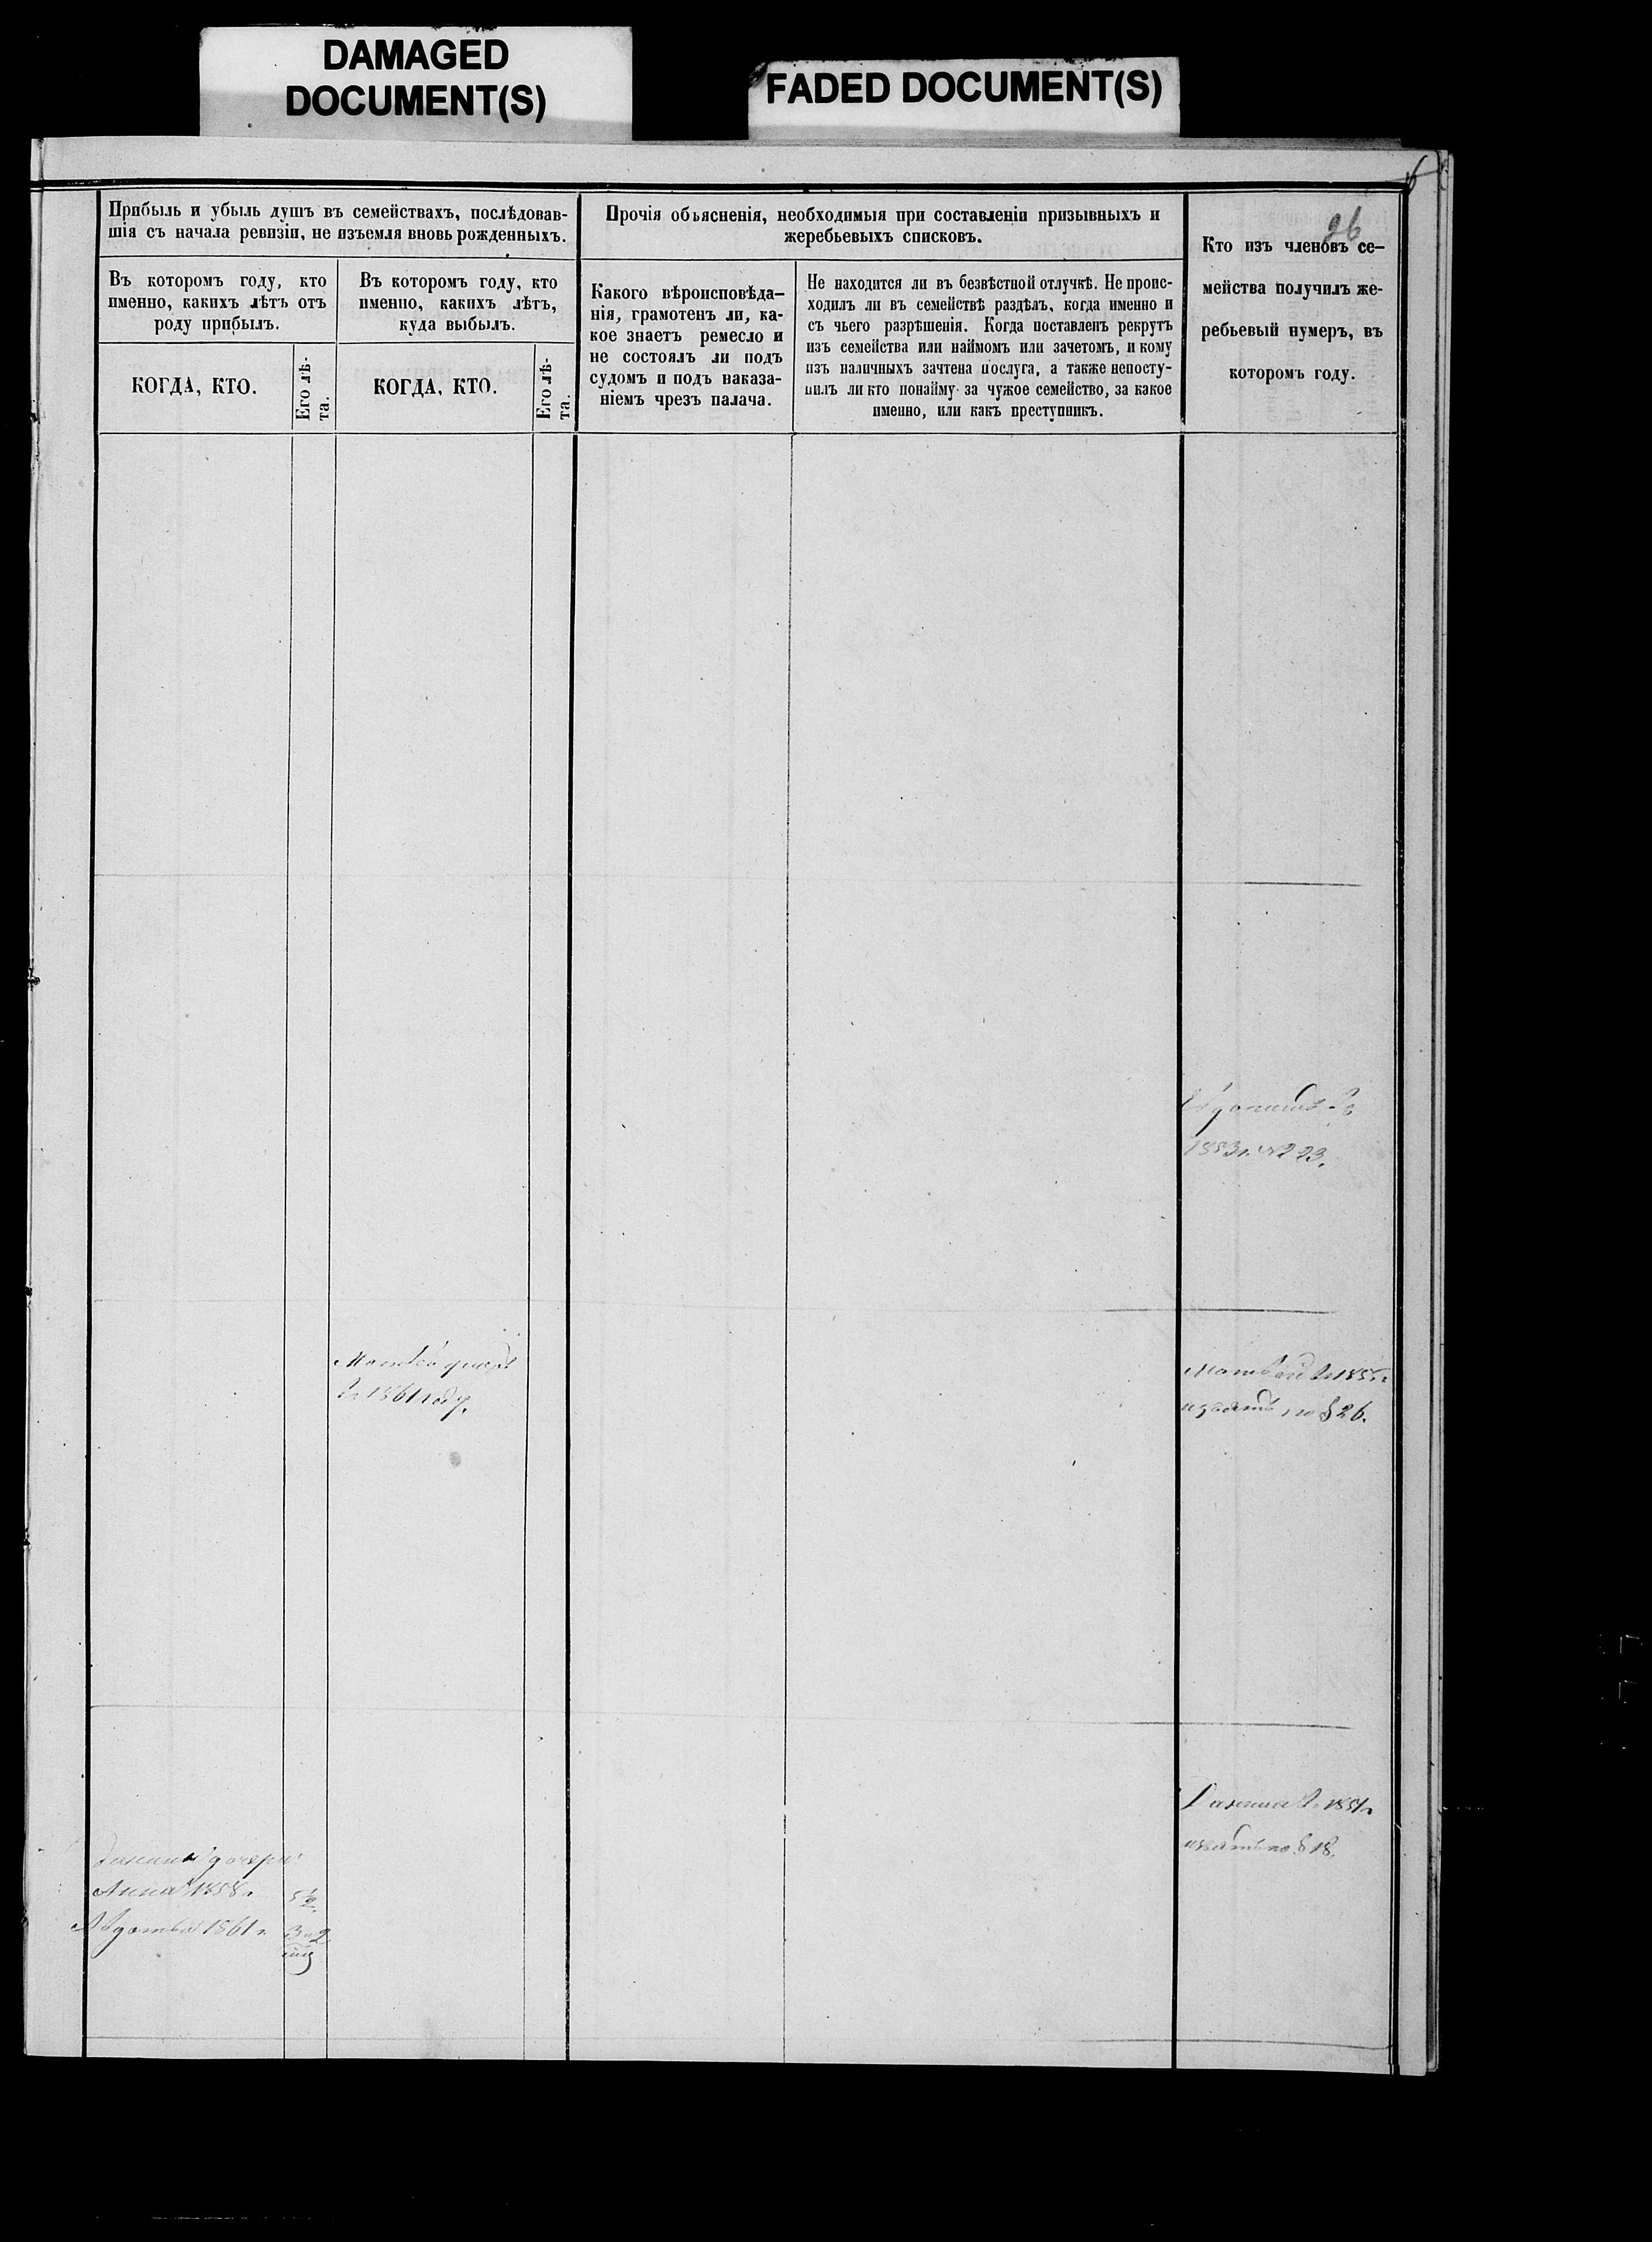 DAMAGED
DOCUMENT(S)
FADED DOCUMENT(S)
26
Прибыль и убыль душъ въ семействахъ, послѣдовав-
шія съ начала ревизіи, не изъемля вновь рожденныхъ.
Въ которомъ году, кто
именно, какихъ лѣтъ отъ
роду прибылъ.
КОГДА, КТО.
Его лѣ-
та.
Въ которомъ году, кто
именно, какихъ лѣтъ,
куда выбылъ.
КОГДА, КТО.
Его лѣ-
та.
Прочія объясненія, необходимыя при составленіи призывныхъ и
жеребьевыхъ списковъ.
Какого вѣроисповѣда-
нія, грамотенъ ли, ка-
кое знаетъ ремесло и
не состоялъ ли подъ
судомъ и подъ наказа-
ніемъ чрезъ палача.
Не находится ли въ безвѣстной отлучкѣ. Не проис-
ходилъ ли въ семействѣ раздѣлъ, когда именно и
съ чьего разрѣшенія. Когда поставленъ рекрутъ
изъ семейства или наймомъ или зачетомъ, и кому
изъ наличныхъ зачтена послуга, а также непосту-
пилъ ли кто понайму за чужое семейство, за какое
именно, или какъ преступникъ.
Кто изъ членовъ се-
мейства получилъ же-
ребьевый нумеръ, въ
которомъ году.
1853 г. № 23.
Матвѣй умеръ
въ 1861 году.
Матвѣй въ 1855 г.
изъятъ по § 26.
въ 1854 г.
изъятъ по § 18.
дочери
Анна 1858 г. 5½
Авдотья 1861 г. 3 и 2